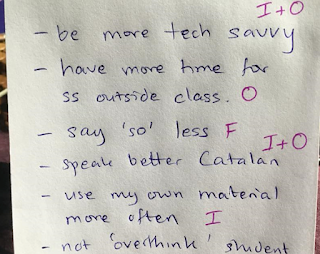 I+O
- be more tech savvy
- have more time for
ss outside class. O
- say 'so' less F
I+O
- speak better Catalan
- use my own material
more often I
- not 'overthink' student